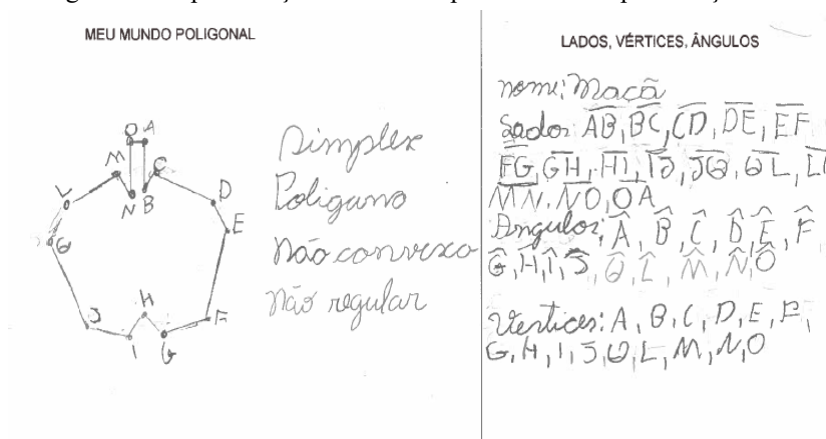 MEU MUNDO POLIGONAL
O A
M C
N B
L D
E
Q
H
J F
I G
Simplex
Poligano
Não convexo
Não regular
LADOS, VÉRTICES, ÂNGULOS
nome: Maçã
Lados: AB, BC, CD, DE, EF
FG, GH, HI, IJ, JQ, QL, L
MN, NO, OA
Angulos: Â, B̂, Ĉ, D̂, Ê, F̂
Ĝ, Ĥ, Î, Ĵ, Q̂, L̂, M̂, N̂, Ô
Vertices: A, B, C, D, E, F,
G, H, I, J, Q, L, M, N, O